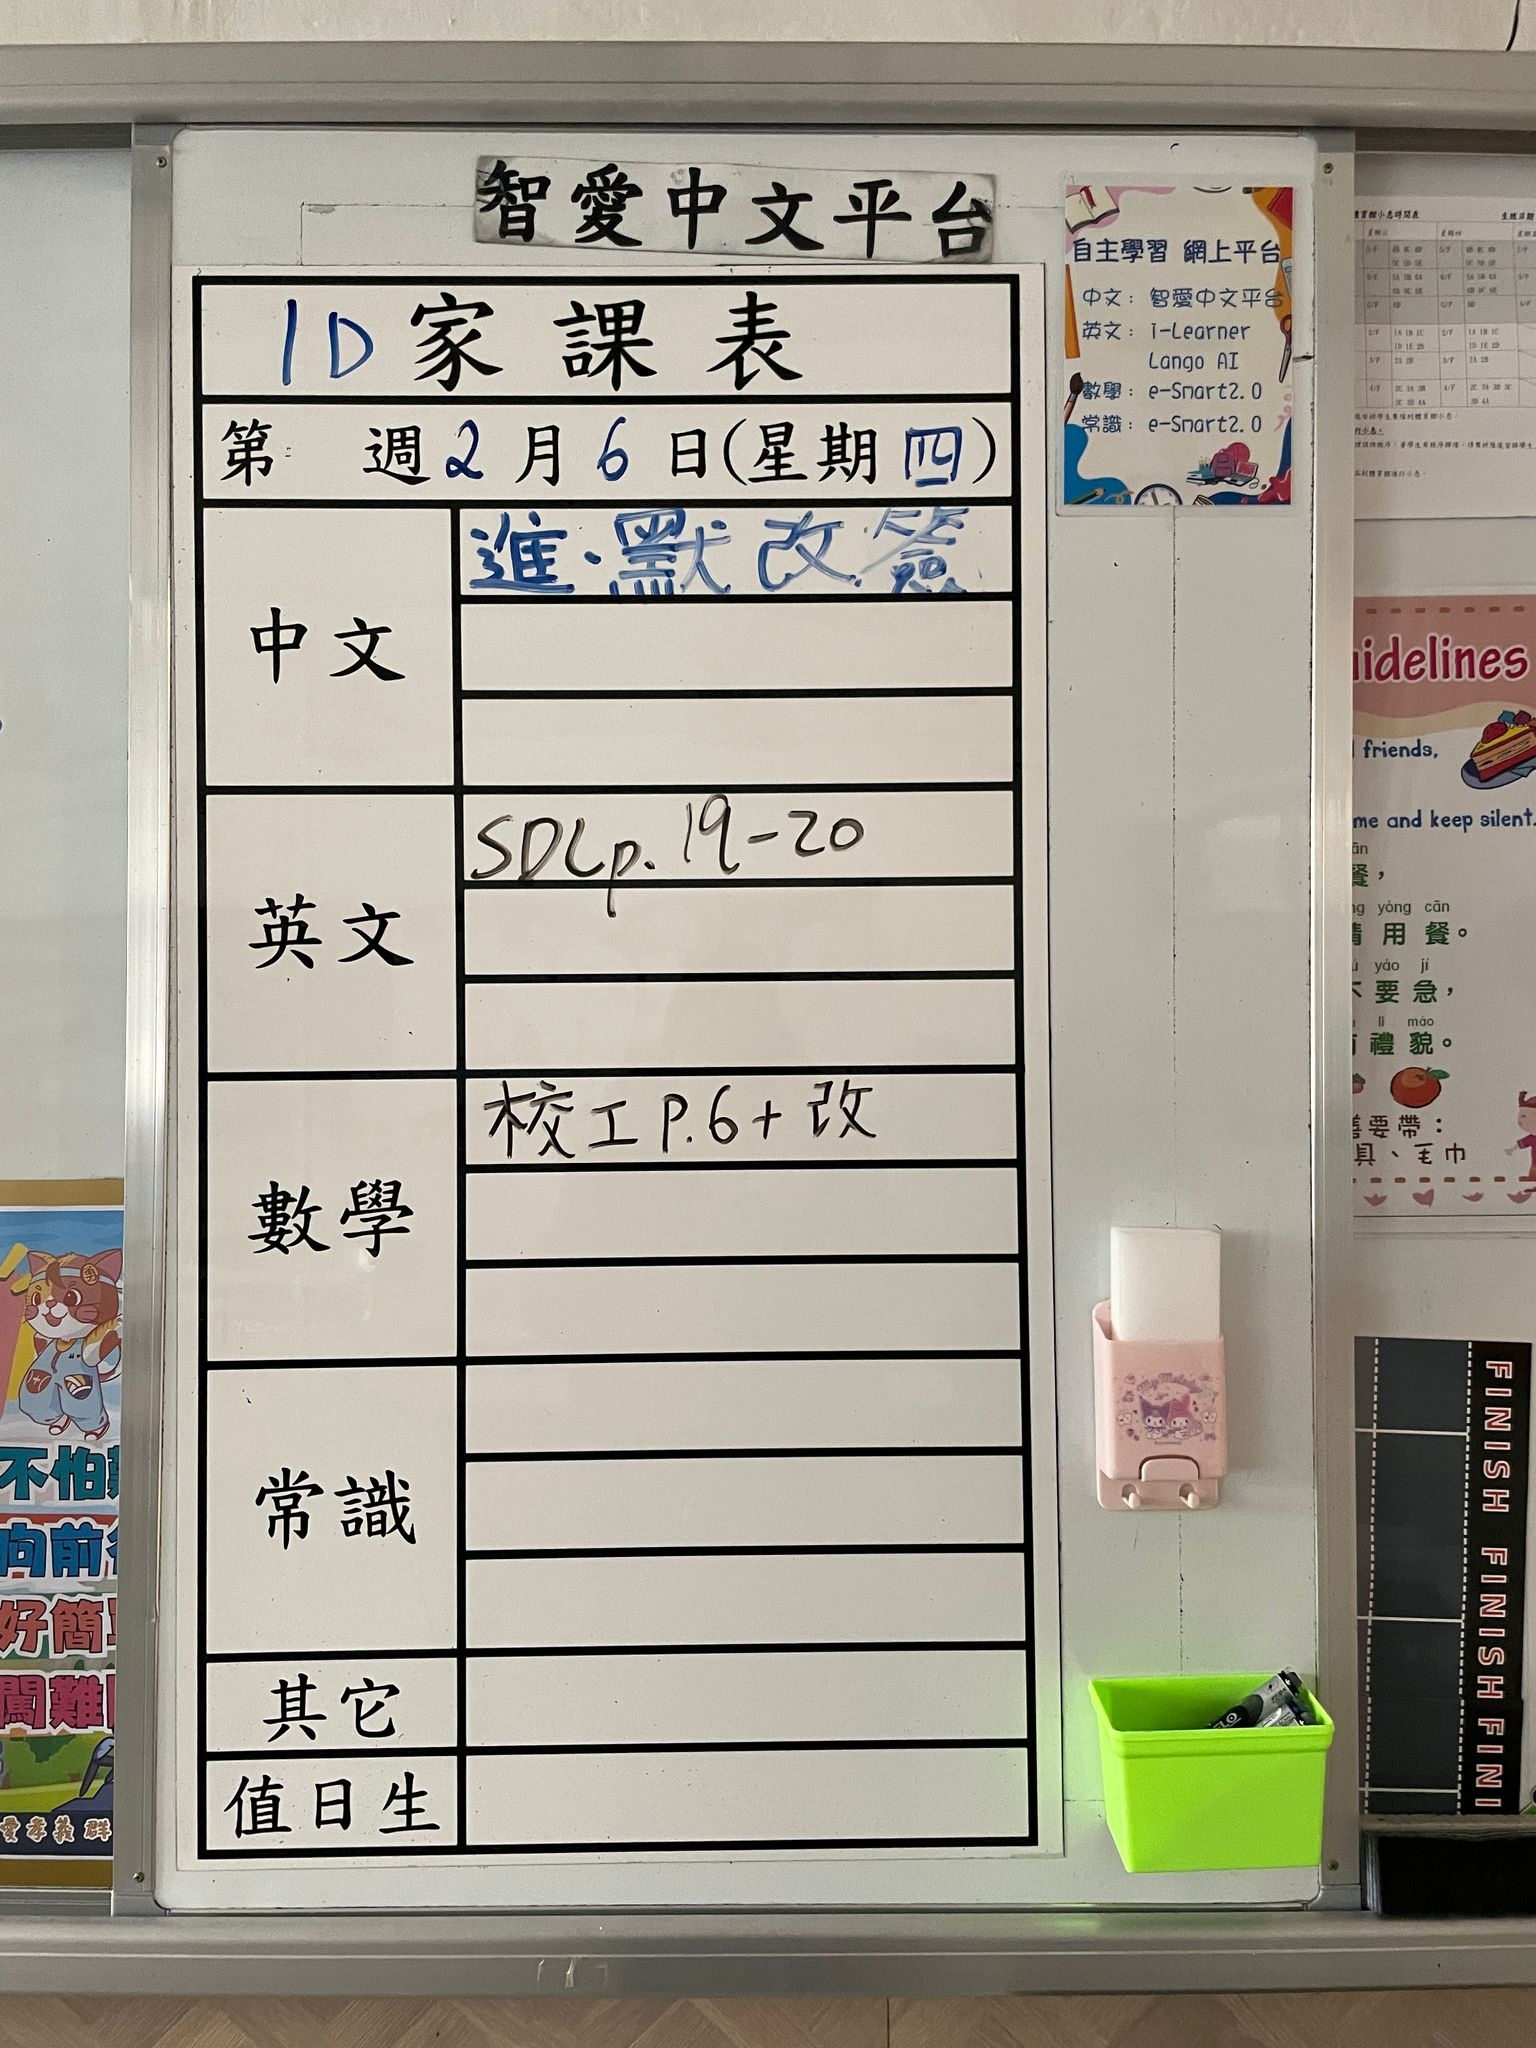 智愛中文平台
1D家課表
第 週2月6日(星期四)
中文
進.默改簽
英文
SDLp.19-20
數學
校工P.6+改
常識
其它
值日生
自主學習 網上平台
中文：智愛中文平台
英文：i-Learner
Lango AI
數學：e-Smart2.0
常識：e-Smart2.0
體育館小息時間表
星期三
星期四
1A 1B 1C
1D 1E 2D
2A 2B
friends,
me and keep silent.
餐，
yòng cān
用餐。
yáo jí
要急，
lǐ mào
禮貌。
要帶：
、毛巾
不怕
向前
好簡
闖難
愛孝義群
FINISH FINISH FINI